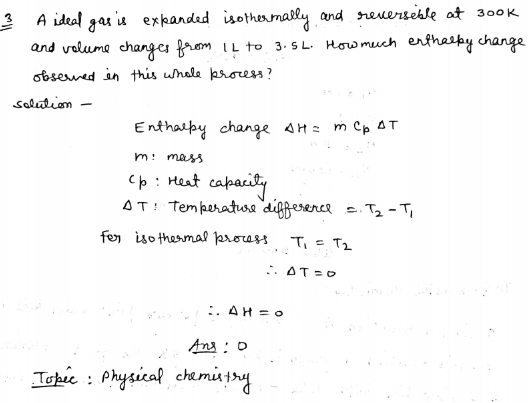 3 A ideal gas is expanded isothermally and reversible at 300K
and volume changes from 1L to 3.5L. How much enthalpy change
observed in this whole process?
solution —
Enthalpy change ΔH = m Cp ΔT
m: mass
Cp : Heat capacity
ΔT : Temperature difference = T₂ - T₁
For isothermal process T₁ = T₂
∴ ΔT = 0
∴ ΔH = 0
Ans : 0
Topic : Physical chemistry